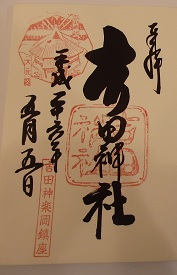 奉拝
吉田神社
平成二十六年
五月五日
吉田神楽岡鎮座